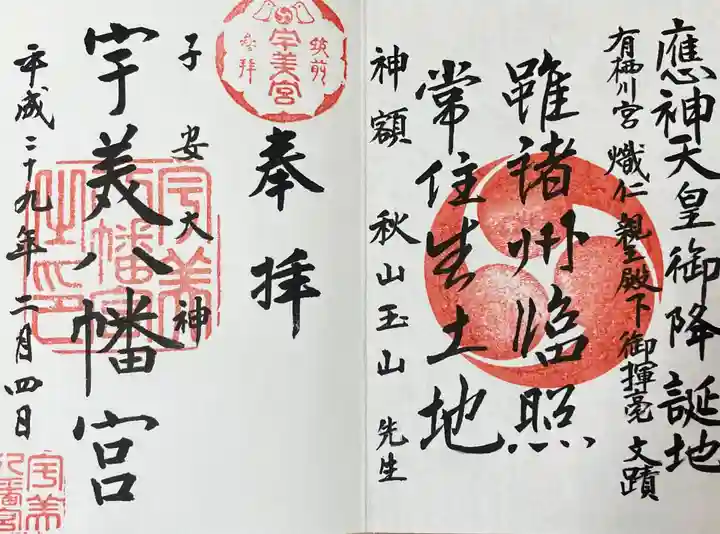 應神天皇御降誕地
有栖川宮 熾仁 親王殿下 御揮毫 文蹟
雖諸州臨照
常住生土地
神額 秋山玉山 先生
奉拝
筑前
宇美宮
参拝
子安大神
宇美八幡宮
平成二十九年二月四日
宇美
八幡宮
之印
宇美
八幡宮